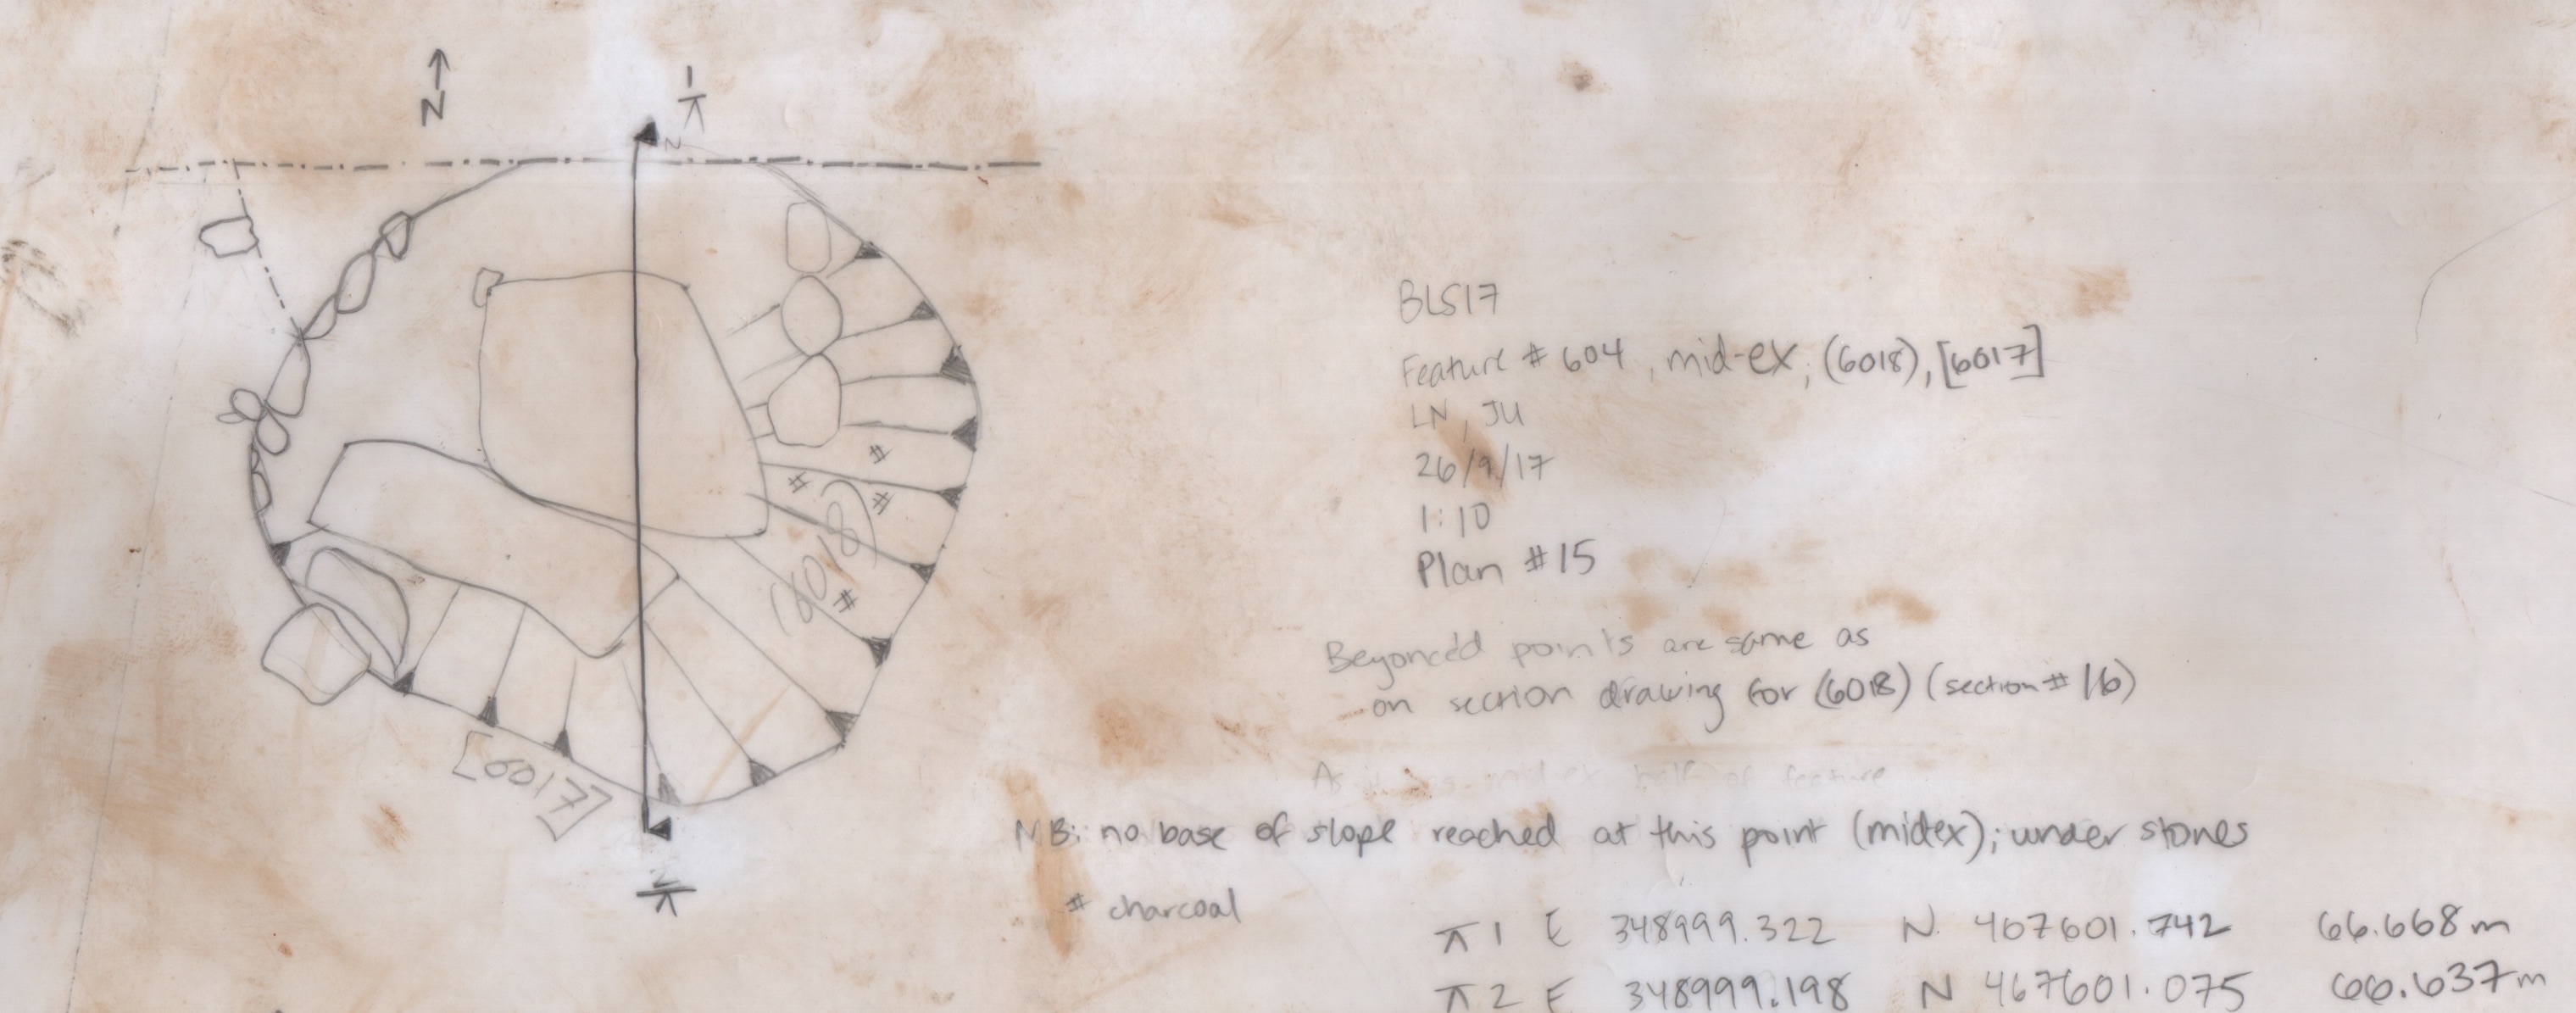 N
1
BLS17
Feature # 604, mid-ex; (6018), [6017]
LN, JU
26/9/17
1:10
Plan #15
(6018)
[6017]
2
Beyoncé'd points are same as
on section drawing for (6018) (section # 16)
As mid ex half of feature
NB: no base of slope reached at this point (midex); under stones
# charcoal
⊼ 1 E 348999.322 N 467601.742 66.668m
⊼ 2 E 348999.198 N 467601.075 66.637m